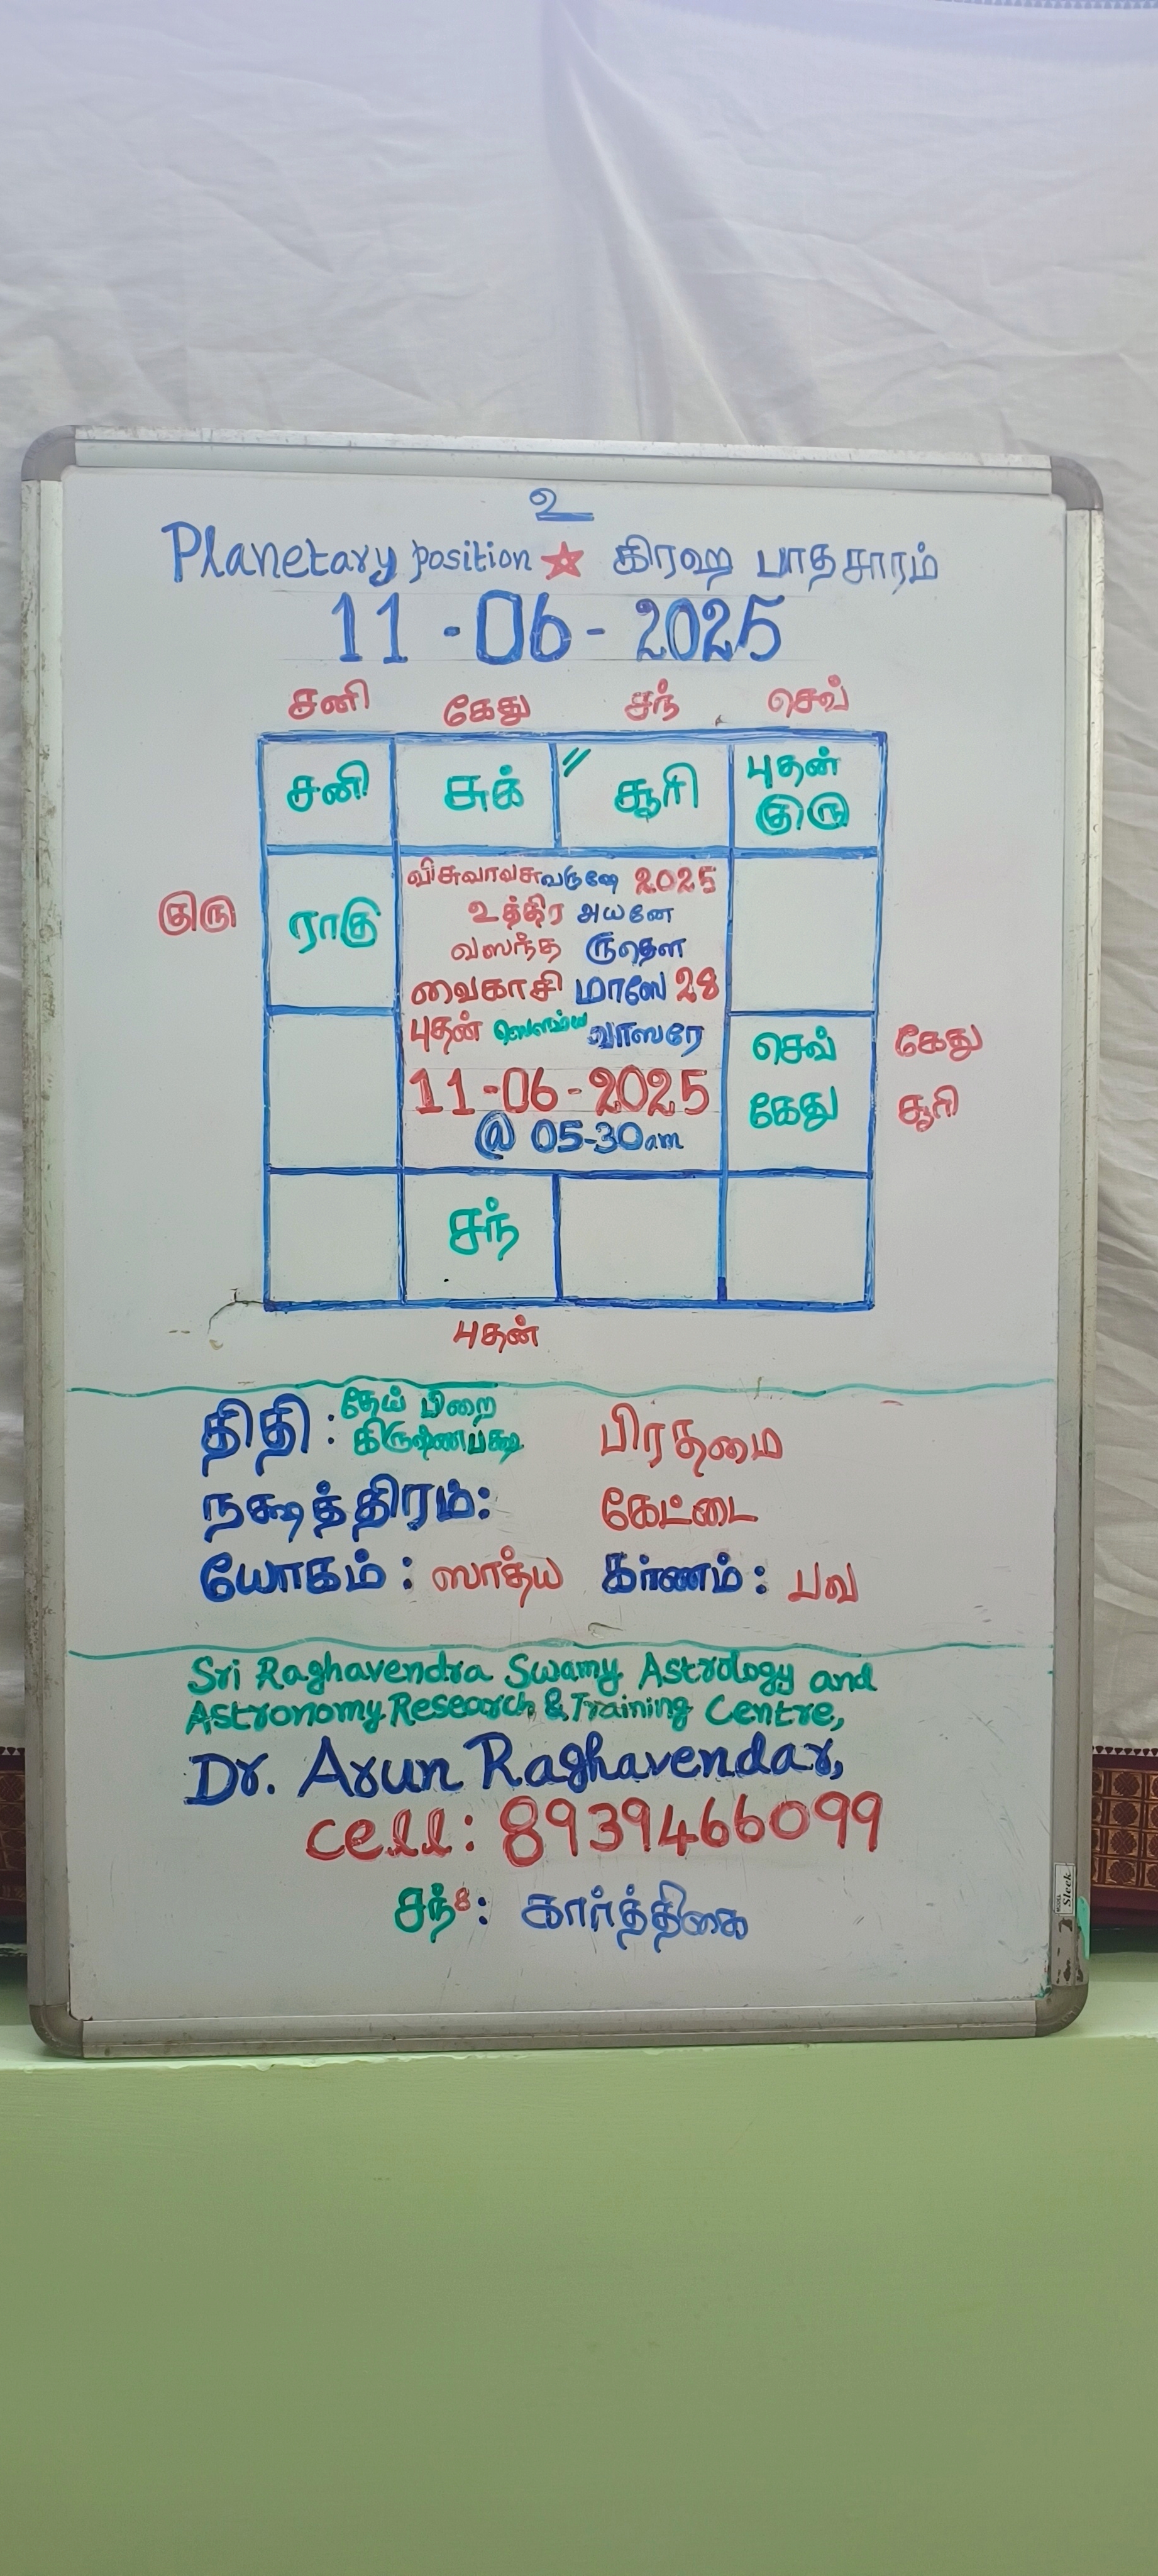 உ
Planetary position ★ கிரஹ பாதசாரம்
11-06-2025
சனி கேது சந் செவ்
சனி சுக் சூரி புதன்
குரு
விசுவாவசுவருஷே 2025
உத்திர அயனே
குரு ராகு
வஸந்த ருதௌ
வைகாசி மாஸே 28
புதன் ஸௌம்ய வாஸரே
செவ் கேது
11-06-2025
கேது சூரி
@ 05-30am
சந்
புதன்
திதி: தேய் பிறை
கிருஷ்ணபக்ஷ பிரதமை
நக்ஷத்திரம்: கேட்டை
யோகம்: ஸாத்ய கர்ணம்: பவ
Sri Raghavendra Swamy Astrology and
Astronomy Research & Training Centre,
Dr. Arun Raghavendar,
Cell: 8939466099
சந்8: கார்த்திகை
Sleek